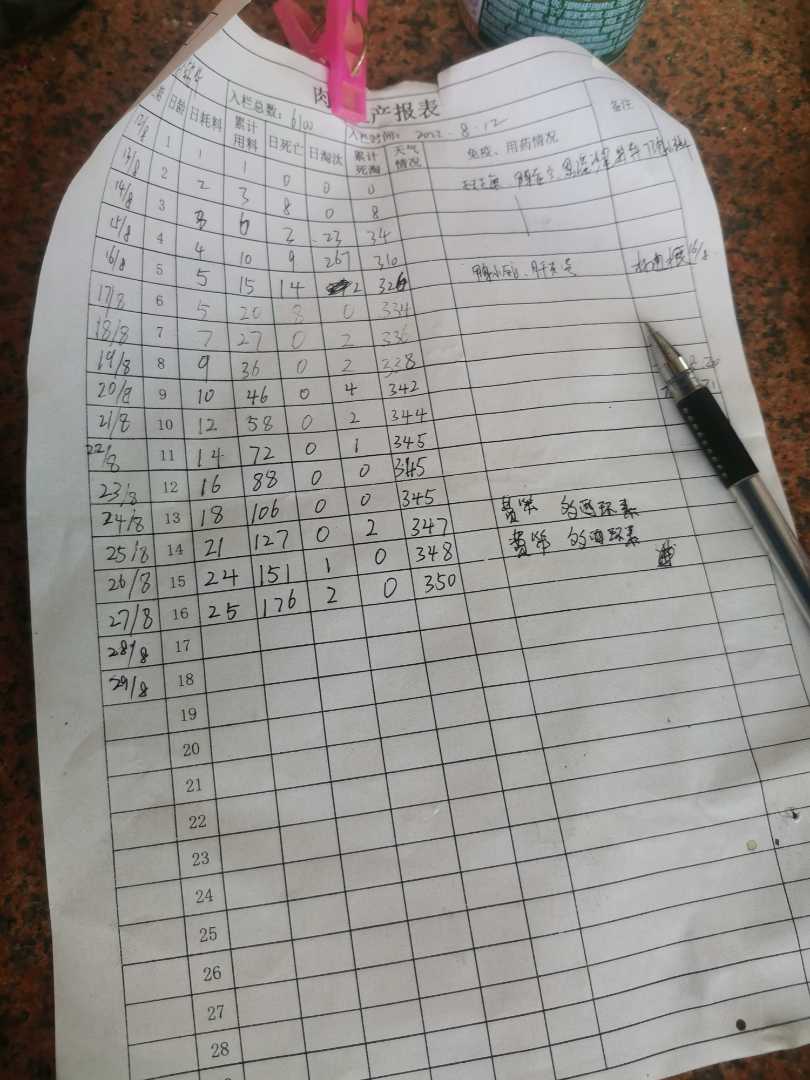 肉 产报表
入栏总数: 6100 入栏时间: 2022.8.12
日龄 日耗料 累计用料 日死亡 日淘汰 累计死淘 天气情况 免疫、用药情况 备注
12/8 1 1 1 0 0 0
13/8 2 2 3 8 0 8
14/8 3 3 6 3 23 34
15/8 4 4 10 9 267 310
16/8 5 5 15 14 2 326
17/8 6 5 20 8 0 334
18/8 7 7 27 0 2 336
19/8 8 9 36 0 2 338
20/8 9 10 46 0 4 342
21/8 10 12 58 0 2 344
22/8 11 14 72 0 1 345
23/8 12 16 88 0 0 345
24/8 13 18 106 0 0 345
25/8 14 21 127 0 2 347
26/8 15 24 151 1 0 348
27/8 16 25 176 2 0 350
28/8 17
29/8 18
19
20
21
22
23
24
25
26
27
28